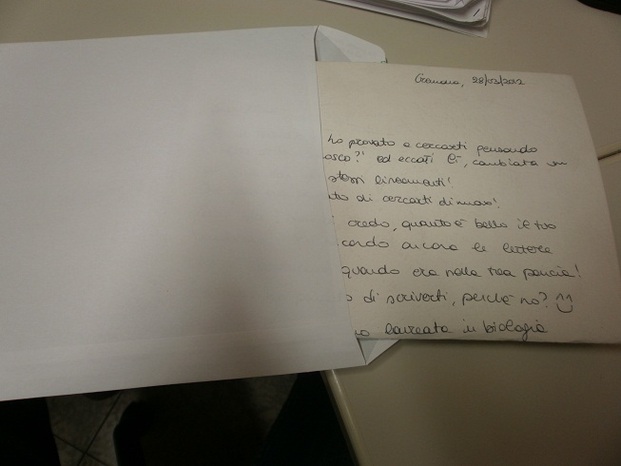 Cremona, 28/03/2012
ho provato a cercarti pensando
osco?" ed eccoti lì, cambiata un
stessi lineamenti!
to di cercarti di nuovo!
credo, quanto è bello il tuo
cordo ancora le lettere
quando era nella tua pancia!
o di scriverti, perché no?
no laureata in biologia